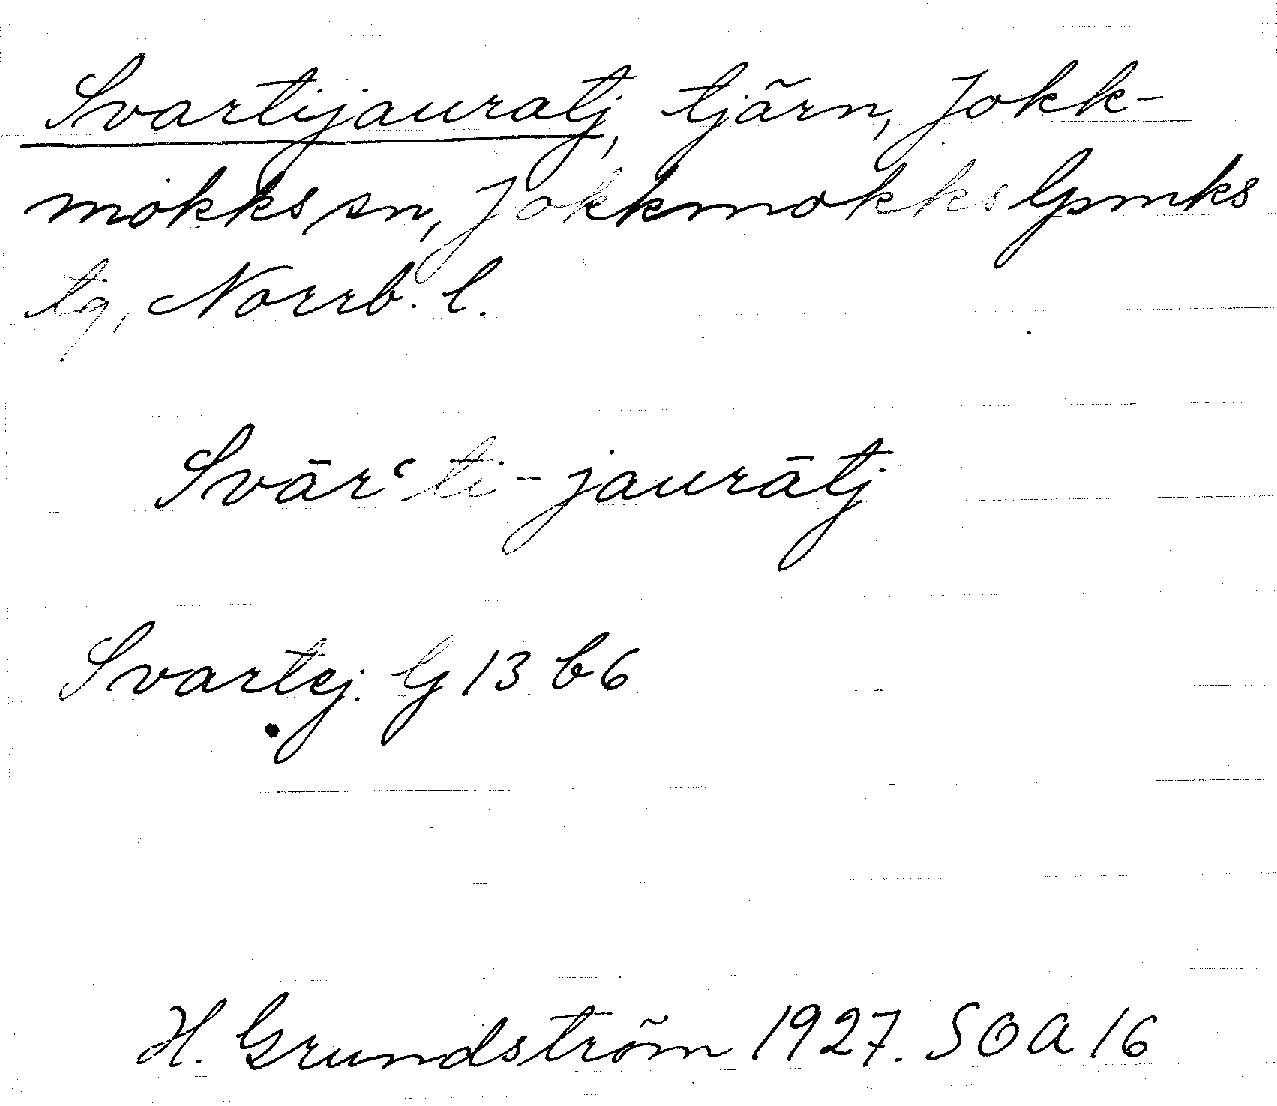 Svartijauratj, tjärn, Jokk-
mokks sn, Jokkmokks lpmks
tg, Norrb. l.
Svārʿti-jaurātj
Svartej. G 13 b6
H. Grundström 1927. SOA 16